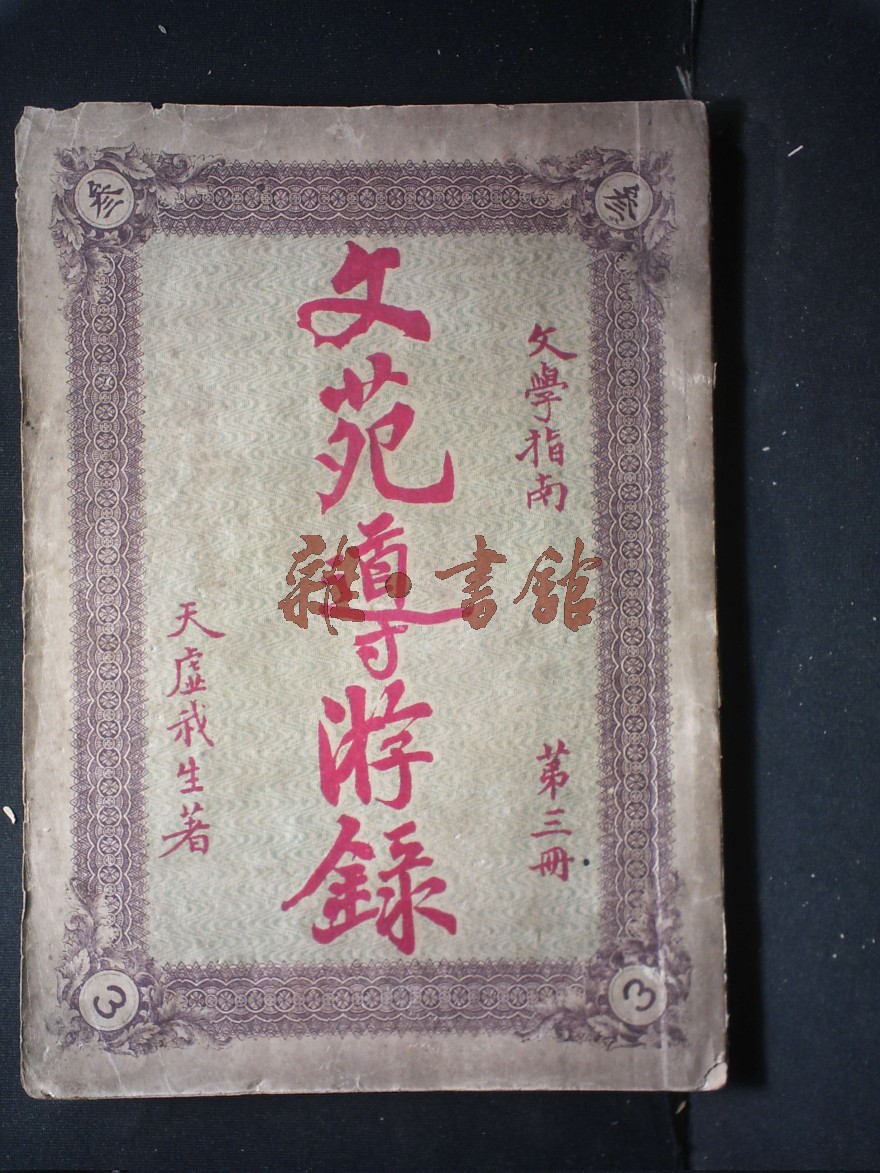 文學指南
第三冊
文苑導游錄
天虛我生著
雜·書館
叄
叄
3
3